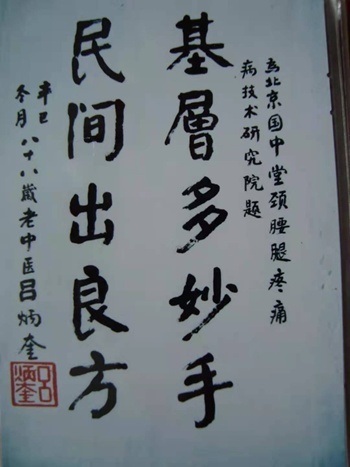 为北京国中堂颈腰腿疼痛
病技术研究院题
基層多妙手
民间出良方
辛巳
冬月八十八歲老中医吕炳奎
吕炳奎